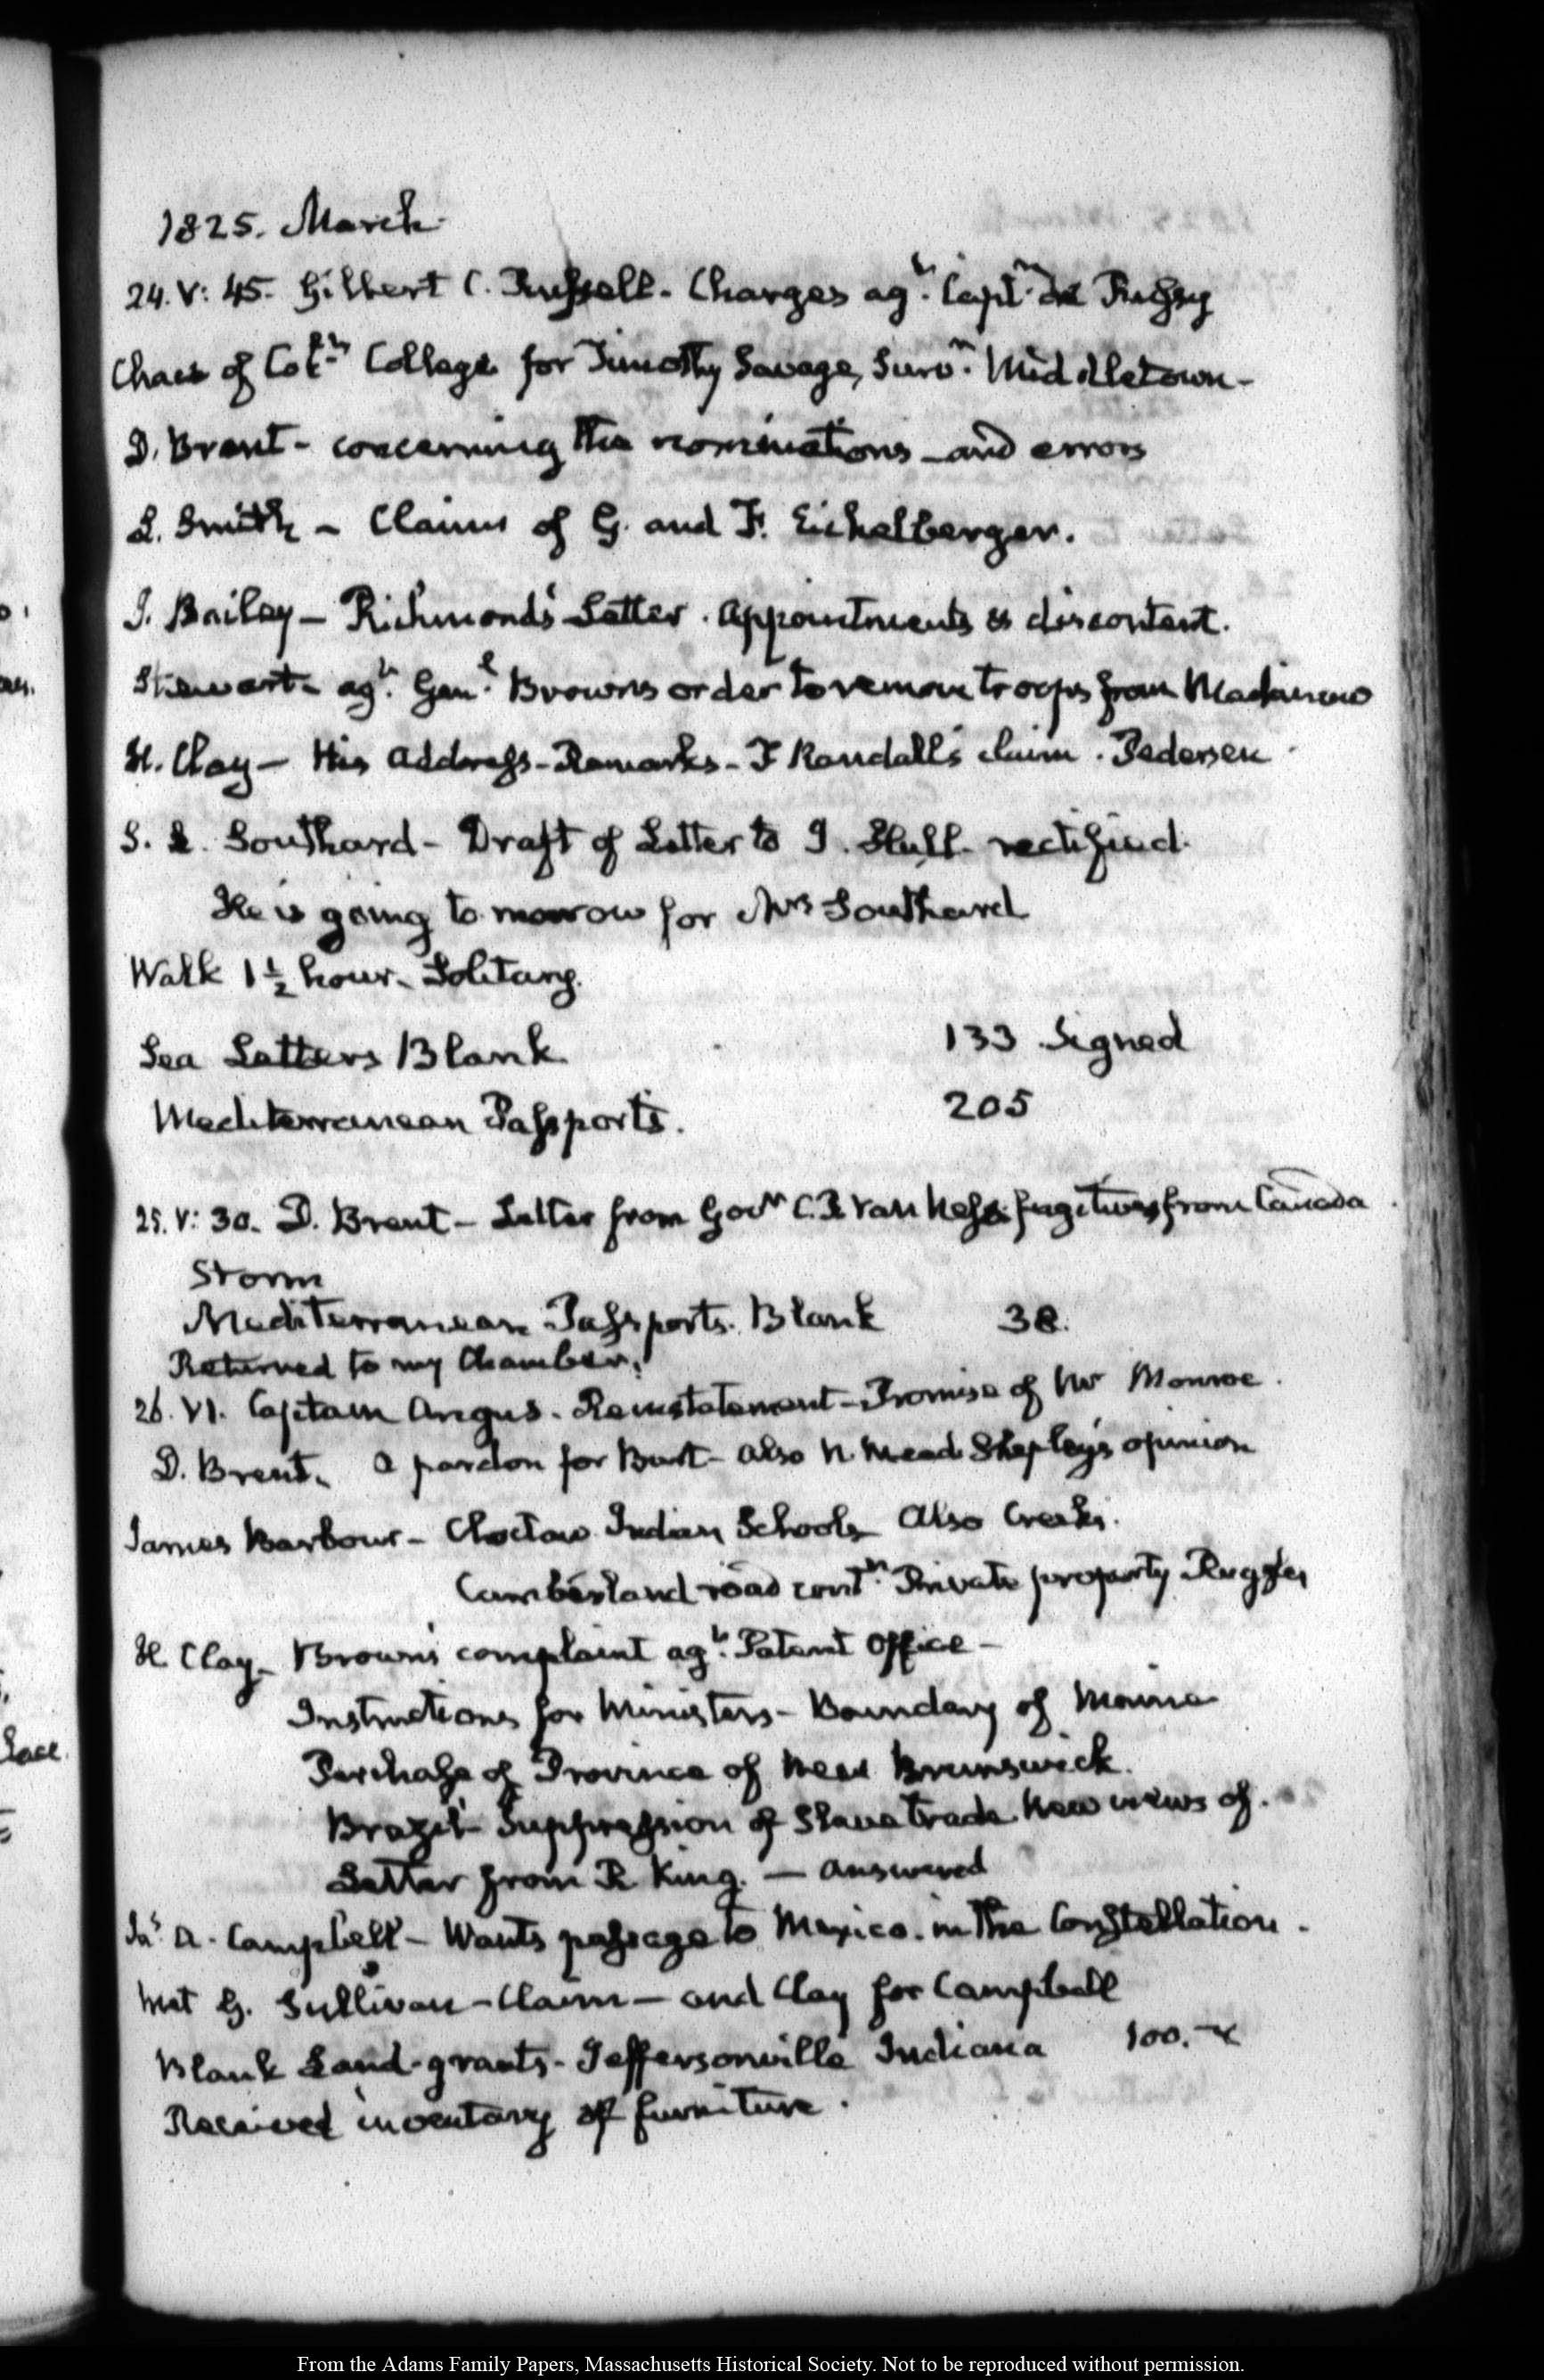 1825. March.
24. V: 45. Gilbert C. Russell. Charges agt. Captn. de Russy
Chace of Colll. College for Timothy Savage, Survr. Middletown-
D. Brent - concerning the nominations - and errors
S. Smith - Claims of G. and F. Eichelberger.
J. Bailey - Richmond's Letter. Appointments & discontent.
Stewart agt. Genl. Browns order to remove troops from
H. Clay - His Address - Remarks - F Randall's claim. Pedersen.
S. L. Southard - Draft of Letter to I. Hull rectified.
He is going to morrow for Mrs Southard
Walk 1 ½ hour. Solitary.
Sea Letters Blank 133 Signed
Mediterranean Passports. 205
25. V: 30. D. Brent - Letter from Govr C. P. Van Ness fugitives from Canada
Storm
Mediterranean Passports. Blank 38.
Returned to my Chamber.
26. VI. Captain Angus. Reinstatement - Promise of Mr Monroe.
D. Brent. a pardon for Burt - also N. Mead Shepley's opinion
James Barbour - Choctaw Indian Schools also Creeks.
Cumberland road contn. Private property Ruggles
H. Clay - Brown's complaint agt. Patent Office -
Instructions for Ministers - Boundary of Maine
Purchase of Province of New Brunswick.
Brazil - Suppression of Slave trade New views of.
Letter from R King. - answered
Js. A. Campbell - Wants passage to Mexico. in the Constellation.
Met G. Sullivan - Claim - and Clay for Campbell
Blank Land-grants - Jeffersonville Indiana 100.
Received inventory of furniture.
From the Adams Family Papers, Massachusetts Historical Society. Not to be reproduced without permission.